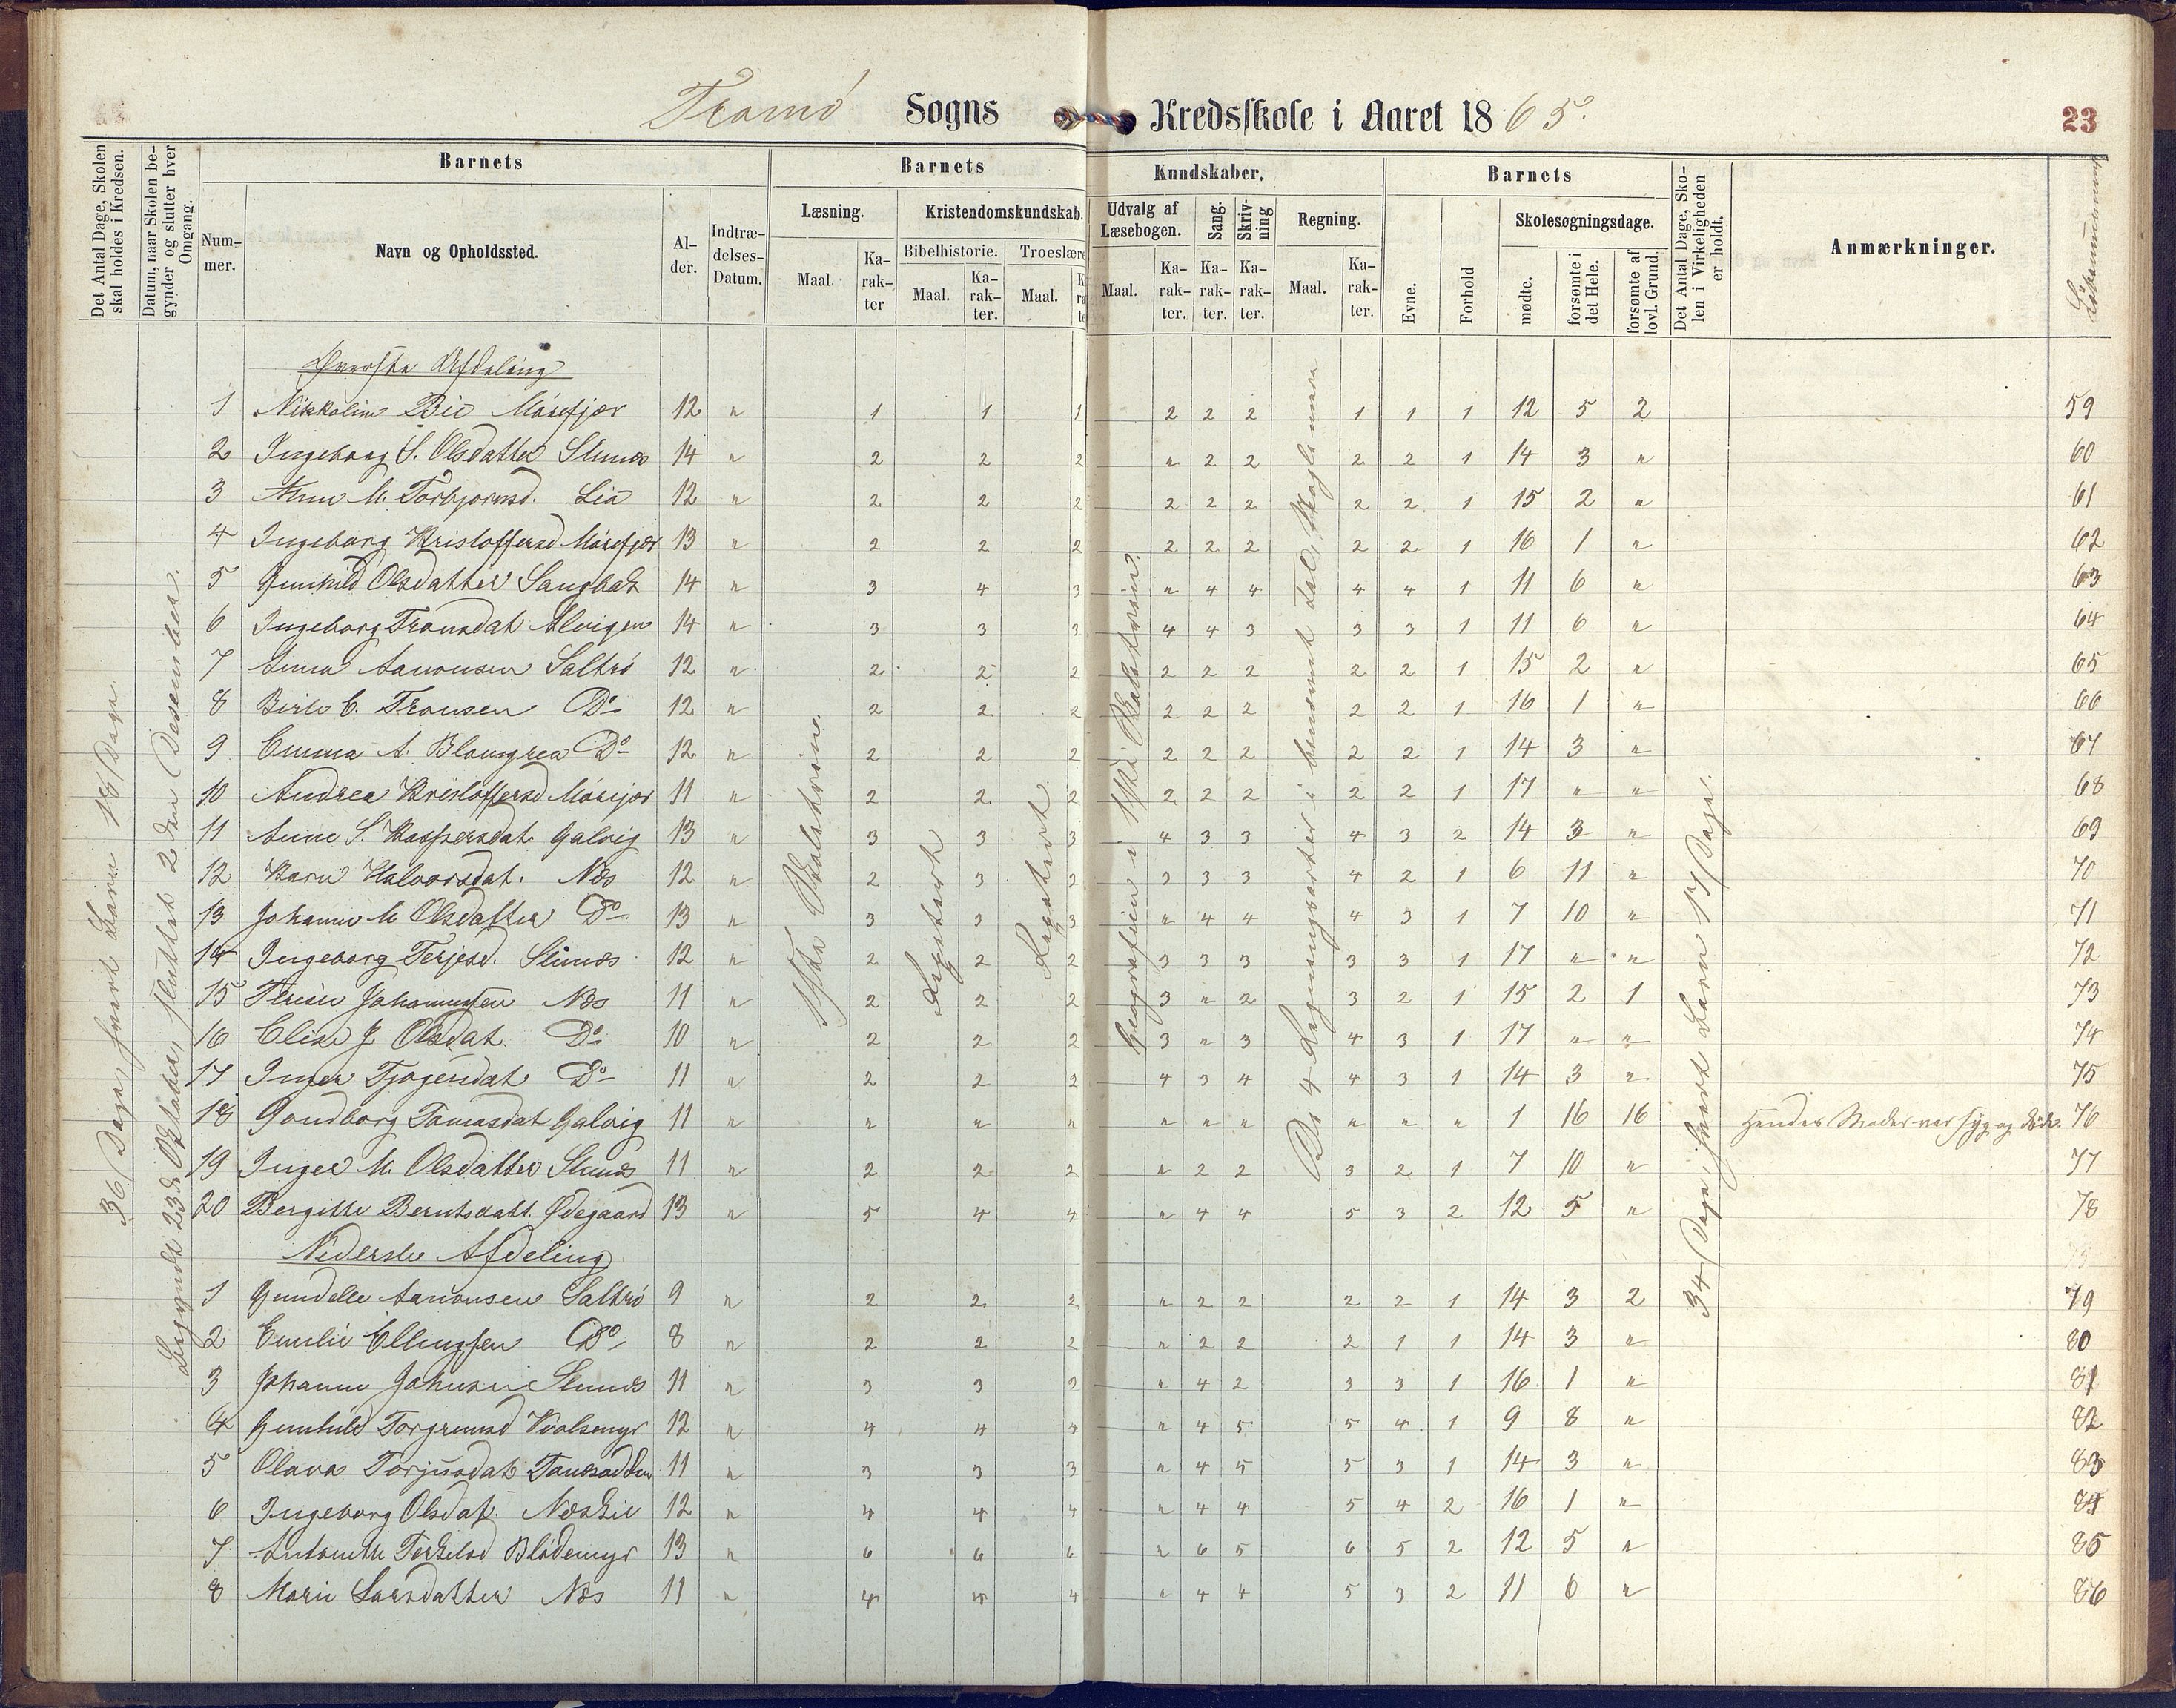 Tromø Sogns Kredsskole i Aaret 1865.
23
Det Antal Dage, Skolen skal holdes i Kredsen.
Datum, naar Skolen begynder og slutter hver Omgang.
Barnets
Nummer.
Navn og Opholdssted.
Alder.
Indtrædelses-Datum.
Barnets Kundskaber.
Læsning.
Maal.
Karakter
Kristendomskundskab.
Bibelhistorie.
Maal.
Karakter.
Troeslære
Maal.
Udvalg af Læsebogen.
Maal.
Karakter.
Sang.
Karakter.
Skrivning
Karakter.
Regning.
Maal.
Karakter.
Barnets
Evne.
Forhold
Skolesøgningsdage.
mødte.
forsømte i det Hele.
forsømte af lovl. Grund.
Det Antal Dage, Skolen i Virkeligheden er holdt.
Anmærkninger.
Løbenummer
36 Dage, hvert Barn 18 Dage.
Begyndt 23de Oktober, sluttet 2den Desember.
1ste Skoletrin.
Repetert
Repetert
Geografien i 1ste Skoletrin.
De 4 Regningsarter i benævnt Tal,
34 Dage, hvert Barn 17 Dage.
Øverste Afdeling
1 Nikkoline Bie Mørefjær 12 " 1 1 1 2 2 2 1 1 1 12 5 2 59
2 Ingeborg S. Olsdatter 14 " 2 2 2 " 2 2 2 2 1 14 3 " 60
3 Anne M. Torbjørnsd. Lia 12 " 2 2 2 2 2 2 2 2 1 15 2 " 61
4 Ingeborg Kristoffersd Mørefjær 13 " 2 2 2 2 2 2 2 2 1 16 1 " 62
5 Gunhild Olsdatter 14 " 3 4 3 " 4 4 4 4 1 11 6 " 63
6 Ingeborg Tronsdat Alvigen 14 " 3 3 3 4 4 3 3 3 1 11 6 " 64
7 Anna Aanonsen Saltrø 12 " 2 2 2 2 2 2 2 2 1 15 2 " 65
8 C. Tronsen Do 12 " 2 2 2 2 2 2 2 2 1 16 1 " 66
9 Emma A. Do 12 " 2 2 2 2 2 2 2 2 1 14 3 " 67
10 Andrea Kristoffersd Mørefjær 11 " 2 2 2 2 2 2 2 2 1 17 " " 68
11 Anne S. Kaspersdat Galvig 13 " 3 3 3 4 3 3 4 3 2 14 3 " 69
12 Karen Halvorsdat. Næs 12 " 2 3 3 3 3 3 4 2 1 6 11 " 70
13 Johanne M Olsdatter Do 13 " 3 3 3 " 4 4 4 3 1 7 10 " 71
14 Ingeborg Terjesd. 12 " 2 2 2 3 3 3 3 3 1 17 " " 72
15 Johannessen Næs 11 " 2 2 2 3 " 2 3 2 1 15 2 1 73
16 Elise J Olsdat. Do 10 " 2 2 2 3 " 3 4 3 1 17 " " 74
17 Inger Do 11 " 2 2 2 4 3 4 4 3 1 14 3 " 75
18 Gondborg Tomasdat Galvig 11 " " " " " " " " " " 1 16 16 Hendes Moder var syg og døde. 76
19 Inger M. Olsdatter 11 " 2 2 2 " 2 2 3 2 1 7 10 " 77
20 Bergitte Berntsdatt. Ødegaard 13 " 5 4 4 " 4 4 5 3 2 12 5 " 78
Nederste Afdeling
1 Gundelle Aanonsen Saltrø 9 " 2 2 2 " 2 2 2 2 1 14 3 2 79
2 Emilie Ellingsen Do 8 " 2 2 2 " 2 2 2 1 1 14 3 " 80
3 Johanne Johnsen 11 " 3 3 3 " 4 2 3 3 1 16 1 " 81
4 Gunhild 12 " 4 4 4 " 4 5 5 4 1 9 8 " 82
5 Olava Torjusdat 11 " 3 3 3 " 4 5 5 3 1 14 3 " 83
6 Ingeborg Olsdat. Næskil 12 " 4 4 4 " 4 4 5 4 2 16 1 " 84
7 Antonette Terkelsd Blødemyr 13 " 6 6 6 " 6 5 6 5 2 12 5 " 85
8 Marie Larsdatter Næs 11 " 4 4 4 " 4 4 5 3 2 11 6 " 86